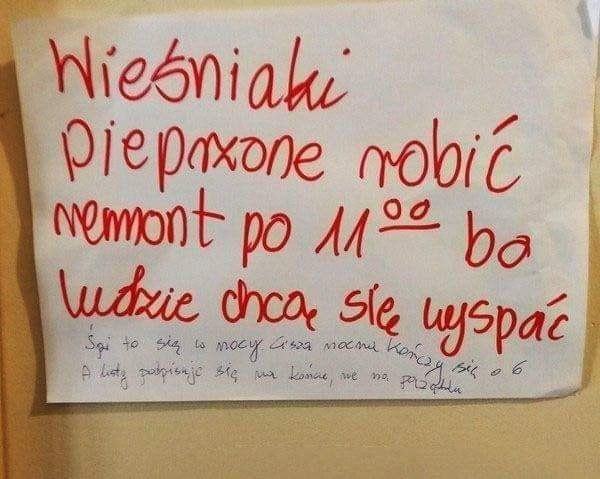 Wieśniaki
pieprxone robić
remont po 11⁰⁰ bo
ludzie chcą się wyspać
Śpi to się w nocy cisza nocna kończy się o 6
A listy podpisuje się na końcu, nie na początku